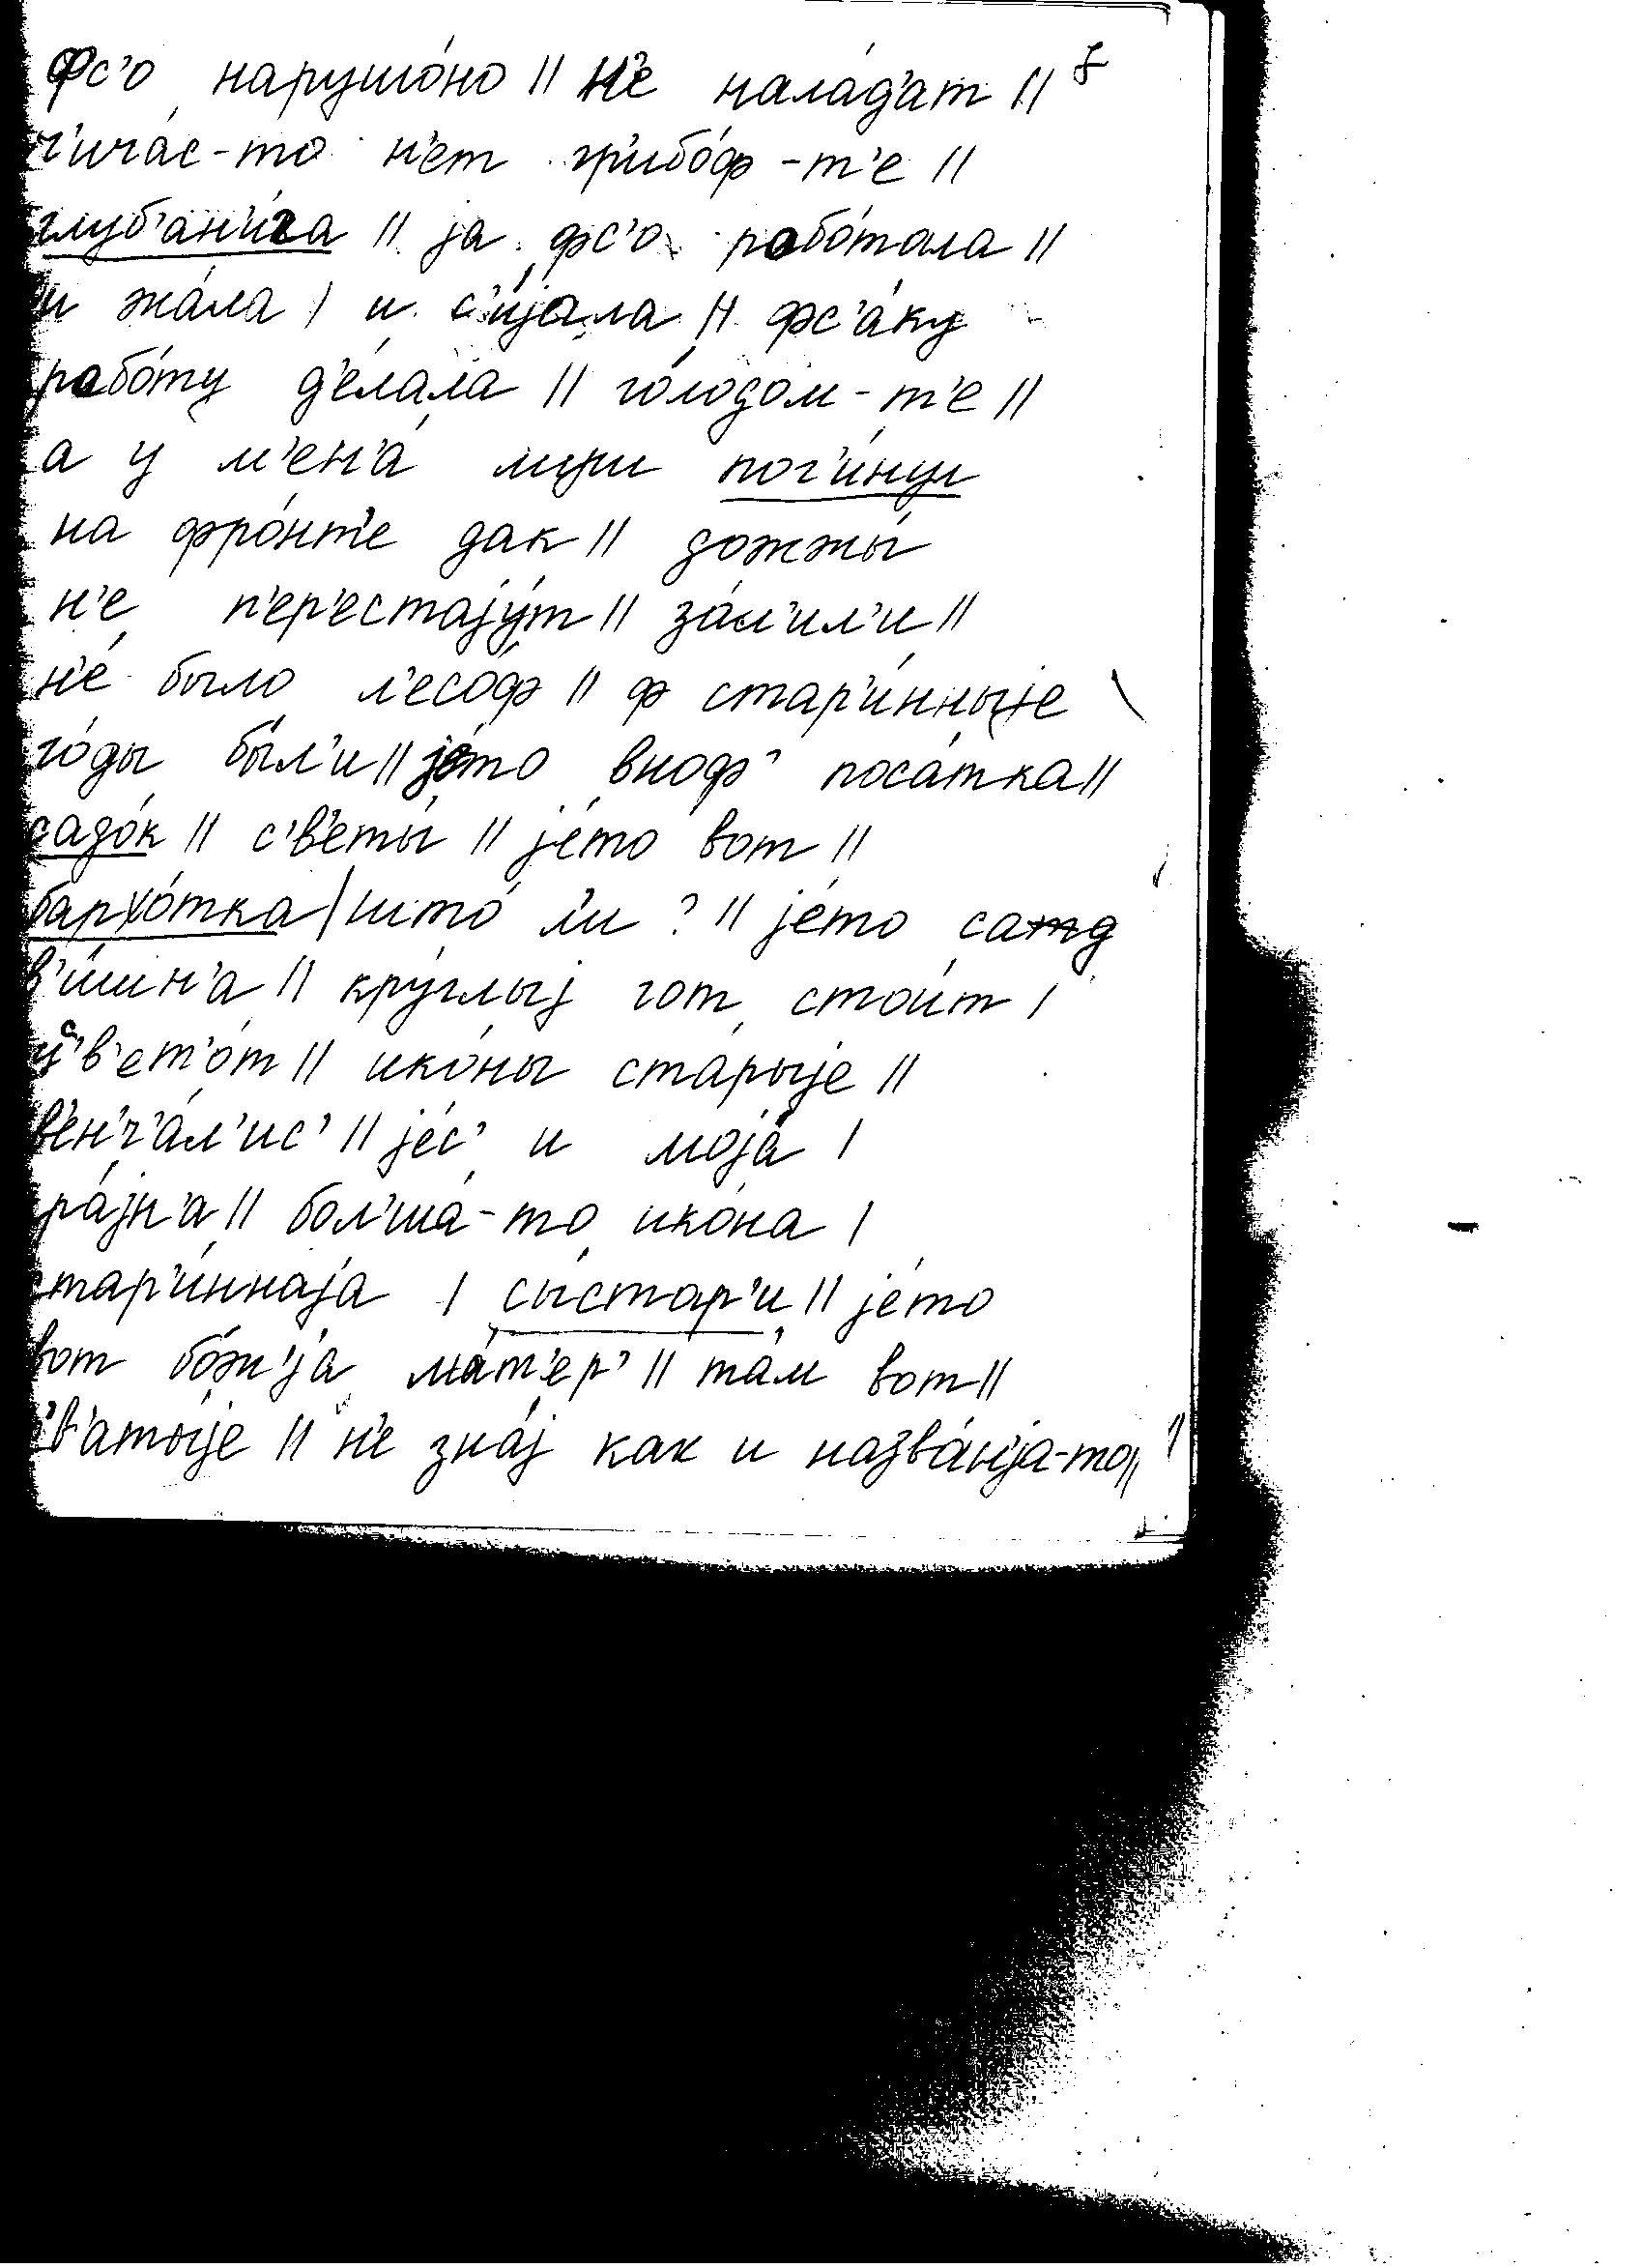 фс'о нарушо́но || н'е нала́д'ат || 7
ч'ича́с-то н'ет гр'ибо́ф-т'е ||
глуб'ан'и́ца || ја фс'о робо́тала ||
и жа́ла | и с'и́јала || фс'а́ку
робо́ту д'е́лала || го́лодом-т'е ||
а у м'ен'а́ муш пог'и́нул
на фро́нт'е дак || дожжы́
н'е п'ер'естају́т || за́л'ил'и ||
н'е́ было л'есо́ф || ф стар'и́нныје
го́ды бы́л'и || је́то вноф' поса́тка ||
садо́к || с'в'еты́ || је́то вот ||
бархо́тка | што́ л'и ? || је́то сад
в'и́шн'а || кру́глыј гот стои́т |
ц'в'ет'о́т || ико́ны ста́рыје ||
в'ен'ч'а́л'ис' || је́с' и моја́ |
кра́јн'а || бол'ша́-то ико́на |
стар'и́ннаја | сы́стар'и || је́то
вот бо́ж'ја ма́т'ер' || та́м вот ||
с'в'аты́је || н'е зна́ј как и назва́н'ја-то ||